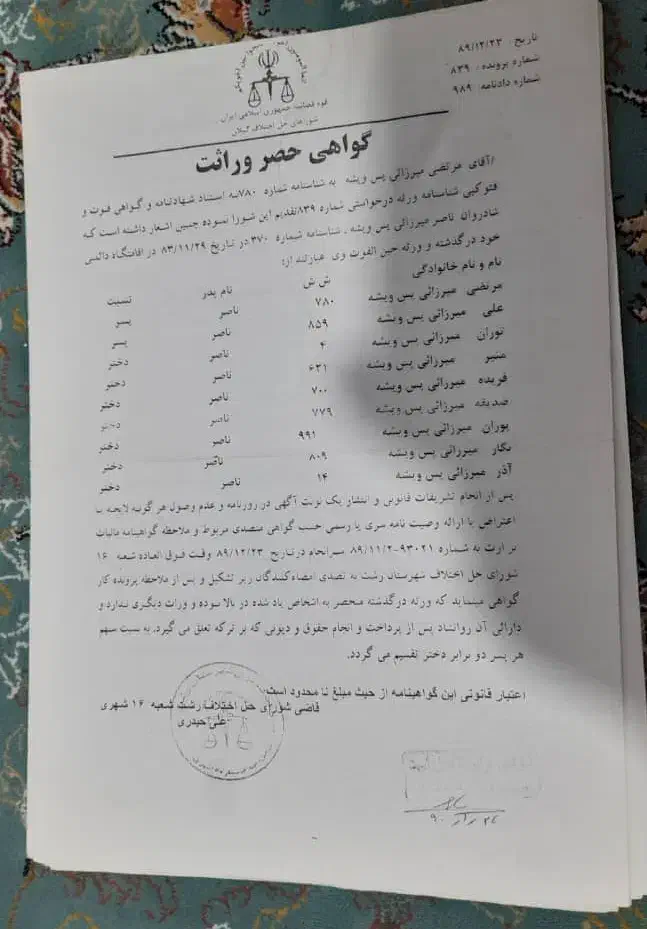 تاریخ : ۸۹/۱۲/۲۳
شماره پرونده : ۸۳۹
شماره دادنامه : ۹۸۹
قوه قضائیه جمهوری اسلامی ایران
شورای حل اختلاف گیلان
گواهی حصر وراثت
آقای مرتضی میرزائی پس ویشه به شناسنامه شماره ۷۸۰به استناد شهادتنامه و گواهی فوت و
فتوکپی شناسنامه ورثه درخواستی شماره ۸۳۹تقدیم این شورا نموده چنین اشعار داشته است که
شادروان ناصر میرزائی پس ویشه . شناسنامه شماره ۳۷۰ در تاریخ ۸۳/۱۱/۲۹ در اقامتگاه دائمی
خود درگذشته و ورثه حین الفوت وی عبارتند از:
نام و نام خانوادگی ش ش نام پدر نسبت
مرتضی میرزائی پس ویشه ۷۸۰ ناصر پسر
علی میرزائی پس ویشه ۸۵۹ ناصر پسر
توران میرزائی پس ویشه ۴ ناصر دختر
منیر میرزائی پس ویشه ۶۳۱ ناصر دختر
فریده میرزائی پس ویشه ۷۰۰ ناصر دختر
صدیقه میرزائی پس ویشه ۷۷۹ ناصر دختر
پوران میرزائی پس ویشه ۹۹۱ ناصر دختر
نگار میرزائی پس ویشه ۸۰۹ ناصر دختر
آذر میرزائی پس ویشه ۱۴ ناصر دختر
پس از انجام تشریفات قانونی و انتشار یک نوبت آگهی در روزنامه و عدم وصول هر گونه لایحه به
اعتراض یا ارائه وصیت نامه سری یا رسمی حسب گواهی متصدی مربوط و ملاحظه گواهینامه مالیات
بر ارث به شماره ۹۳۰۲۱-۸۹/۱۱/۲ سرانجام درتاریخ ۸۹/۱۲/۲۳ وقت فوق العاده شعبه ۱۶
شورای حل اختلاف شهرستان رشت به تصدی امضاءکنندگان زیر تشکیل و پس از ملاحظه پرونده کار
گواهی مینماید که ورثه درگذشته منحصر به اشخاص یاد شده در بالا بوده و وراث دیگری ندارد و
دارائی آن روانشاد پس از پرداخت و انجام حقوق و دیونی که بر ترکه تعلق می گیرد، به نسبت سهم
هر پسر دو برابر دختر تقسیم می گردد.
اعتبار قانونی این گواهینامه از حیث مبلغ نا محدود است.
قاضی شورای حل اختلاف رشت شعبه ۱۶ شهری
علی حیدری